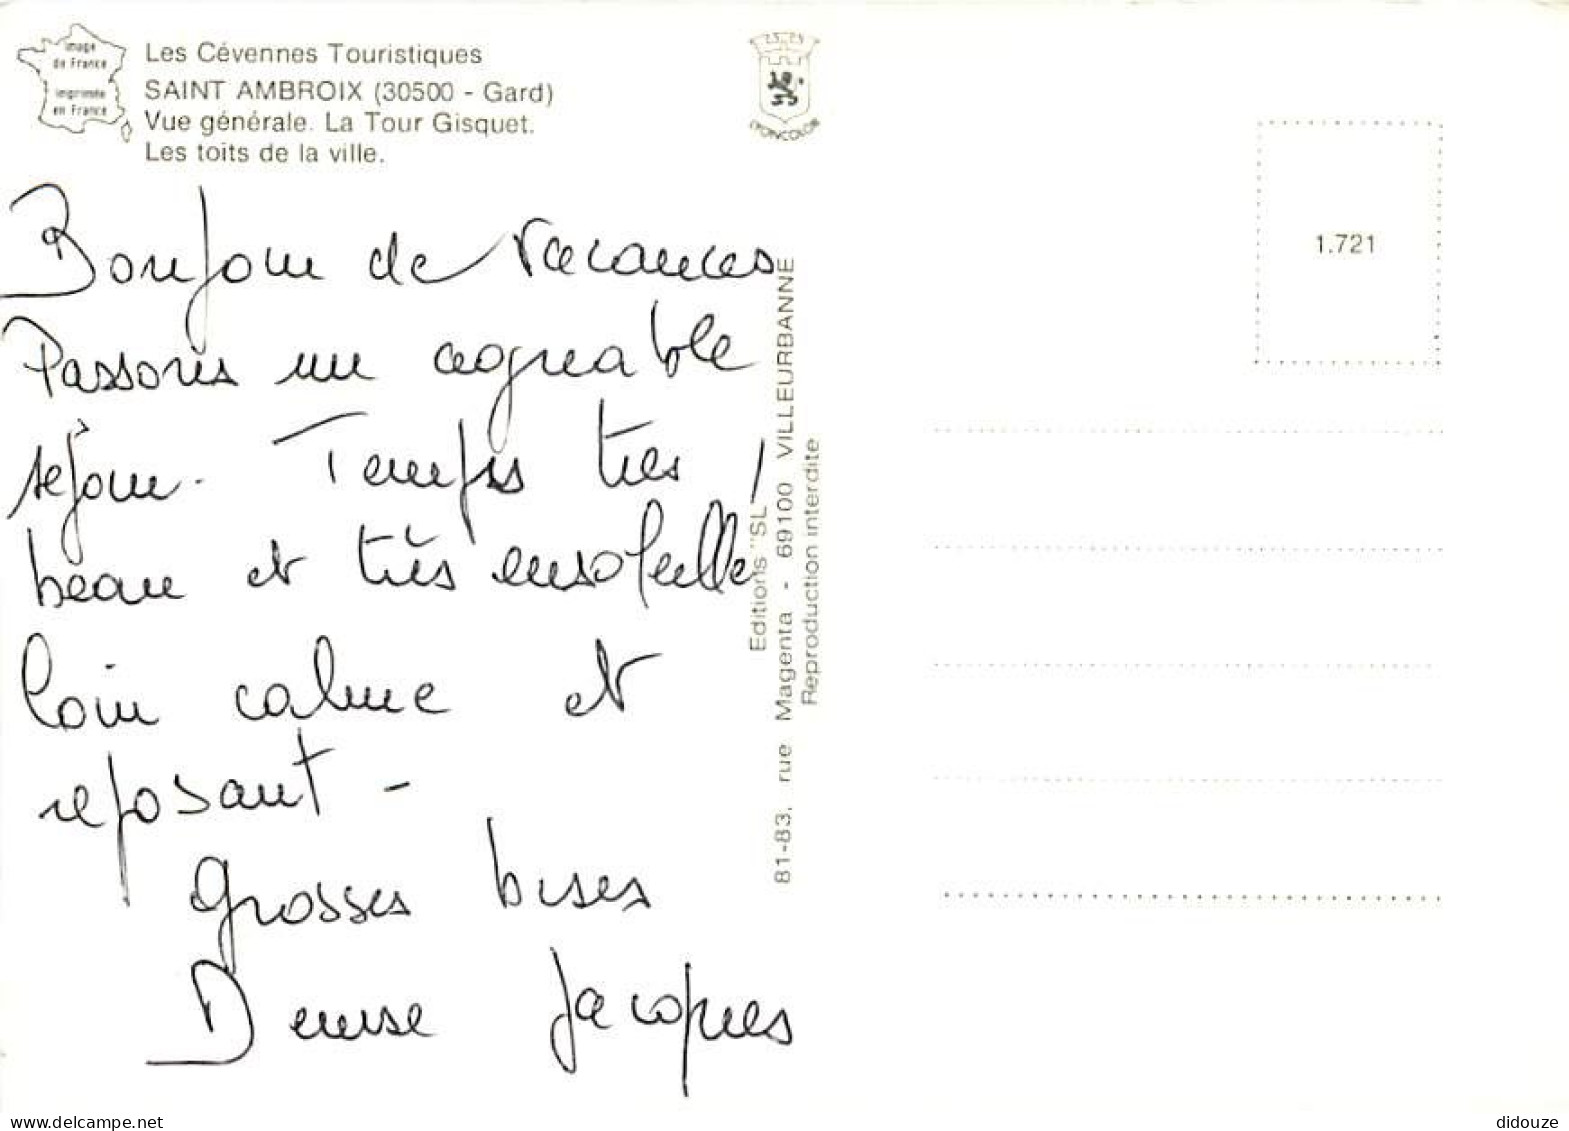 image
de France
imprimée
en France
Les Cévennes Touristiques
SAINT AMBROIX (30500 - Gard)
Vue générale. La Tour Gisquet.
Les toits de la ville.
LYONCOLOR
1.721
Bonjour de vacances
Passons un agréable
séjour. Temps très
beau et très ensoleillé
Coin calme et
reposant -
Grosses bises
Denise Jacques
Editions "SL"
81-83, rue Magenta - 69100 VILLEURBANNE
Reproduction interdite
delcampe.net
didouze